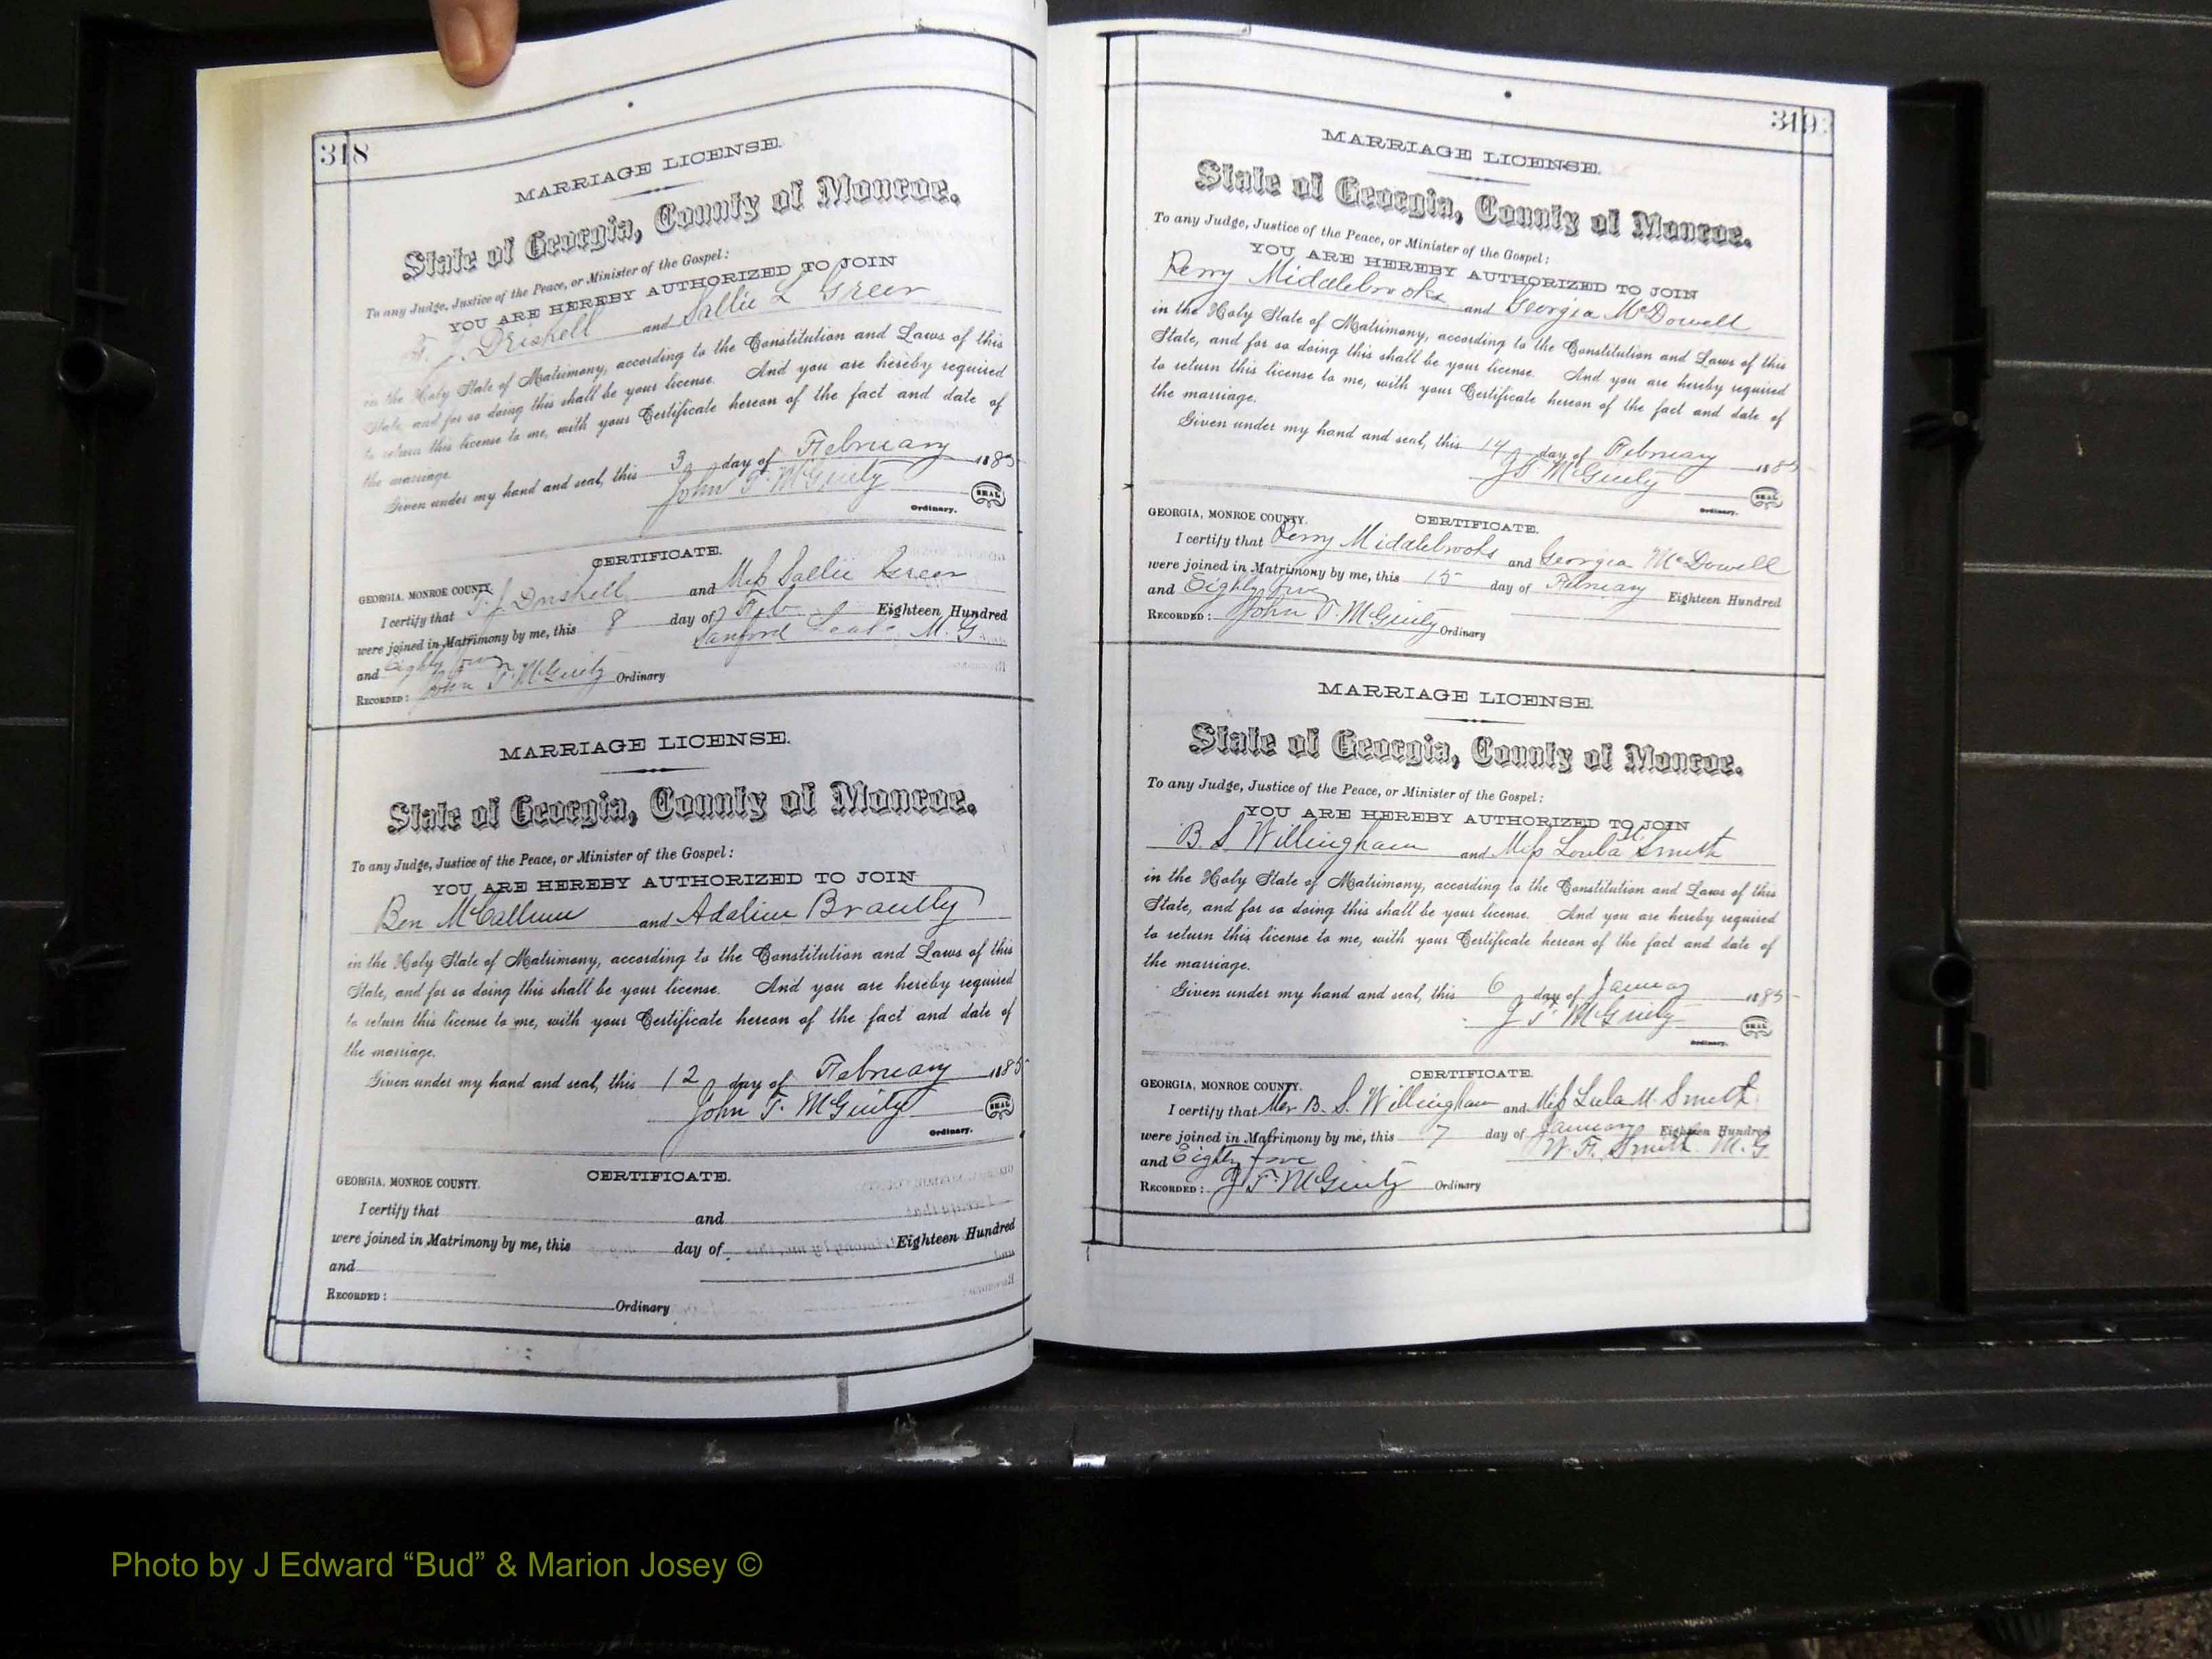 318
MARRIAGE LICENSE.
State of Georgia, County of Monroe.
To any Judge, Justice of the Peace, or Minister of the Gospel:
YOU ARE HEREBY AUTHORIZED TO JOIN
J. Driskell and Sallie L Greer
in the Holy State of Matrimony, according to the Constitution and Laws of this
State, and for so doing this shall be your license. And you are hereby required
to return this license to me, with your Certificate hereon of the fact and date of
the marriage.
Given under my hand and seal, this 3 day of February 1885
John T. McGinty SEAL
Ordinary.
CERTIFICATE.
GEORGIA, MONROE COUNTY.
I certify that T. J. Driskell and Miss Sallie Greer
were joined in Matrimony by me, this 8 day of Feb Eighteen Hundred
and Eighty five Sanford M. G.
RECORDED: John T. McGinty Ordinary
MARRIAGE LICENSE.
State of Georgia, County of Monroe.
To any Judge, Justice of the Peace, or Minister of the Gospel:
YOU ARE HEREBY AUTHORIZED TO JOIN
Ben McCallum and Adaline Brantly
in the Holy State of Matrimony, according to the Constitution and Laws of this
State, and for so doing this shall be your license. And you are hereby required
to return this license to me, with your Certificate hereon of the fact and date of
the marriage.
Given under my hand and seal, this 12 day of February 1885
John T. McGinty SEAL
Ordinary.
CERTIFICATE.
GEORGIA, MONROE COUNTY.
I certify that and
were joined in Matrimony by me, this day of Eighteen Hundred
and
RECORDED: Ordinary
319
MARRIAGE LICENSE.
State of Georgia, County of Monroe.
To any Judge, Justice of the Peace, or Minister of the Gospel:
YOU ARE HEREBY AUTHORIZED TO JOIN
Perry Middlebrooks and Georgia McDowell
in the Holy State of Matrimony, according to the Constitution and Laws of this
State, and for so doing this shall be your license. And you are hereby required
to return this license to me, with your Certificate hereon of the fact and date of
the marriage.
Given under my hand and seal, this 14 day of February 1885
J T McGinty SEAL
Ordinary.
CERTIFICATE.
GEORGIA, MONROE COUNTY.
I certify that Perry Middlebrooks and Georgia McDowell
were joined in Matrimony by me, this 15 day of February Eighteen Hundred
and Eighty five
RECORDED: John T. McGinty Ordinary
MARRIAGE LICENSE.
State of Georgia, County of Monroe.
To any Judge, Justice of the Peace, or Minister of the Gospel:
YOU ARE HEREBY AUTHORIZED TO JOIN
B. S Willingham and Miss Loula M Smith
in the Holy State of Matrimony, according to the Constitution and Laws of this
State, and for so doing this shall be your license. And you are hereby required
to return this license to me, with your Certificate hereon of the fact and date of
the marriage.
Given under my hand and seal, this 6 day of January 1885
J T McGinty SEAL
Ordinary.
CERTIFICATE.
GEORGIA, MONROE COUNTY.
I certify that Mr B. S. Willingham and Miss Lula M. Smith
were joined in Matrimony by me, this 7 day of January Eighteen Hundred
and Eighty five W. F. Smith M. G
RECORDED: J T McGinty Ordinary
Photo by J Edward “Bud” & Marion Josey ©